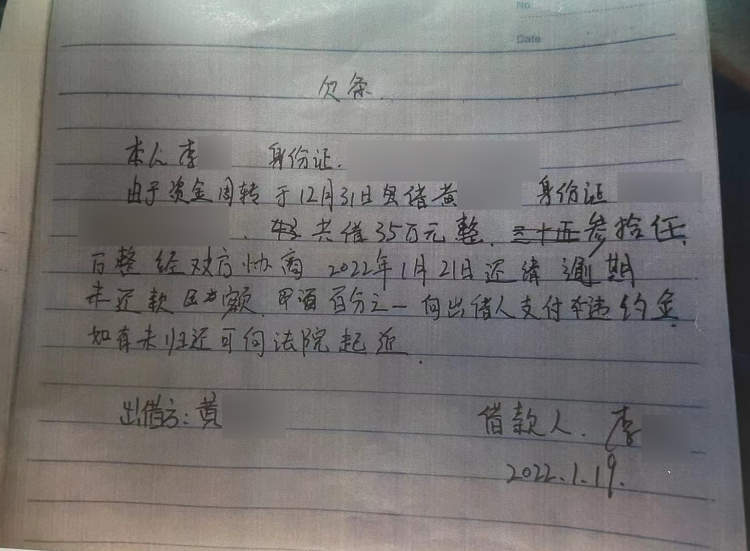 No
Date
欠条
本人李 身份证.
由于资金周转于12月31日 借黄 身份证
共借35万元整. 三十五叁拾伍
万整经对方协商 2022年1月21日还清 逾期
未还款 百分之一向出借人支付 违约金
如有未归还可向法院起
出借方:黄 借款人. 李
2022.1.19.